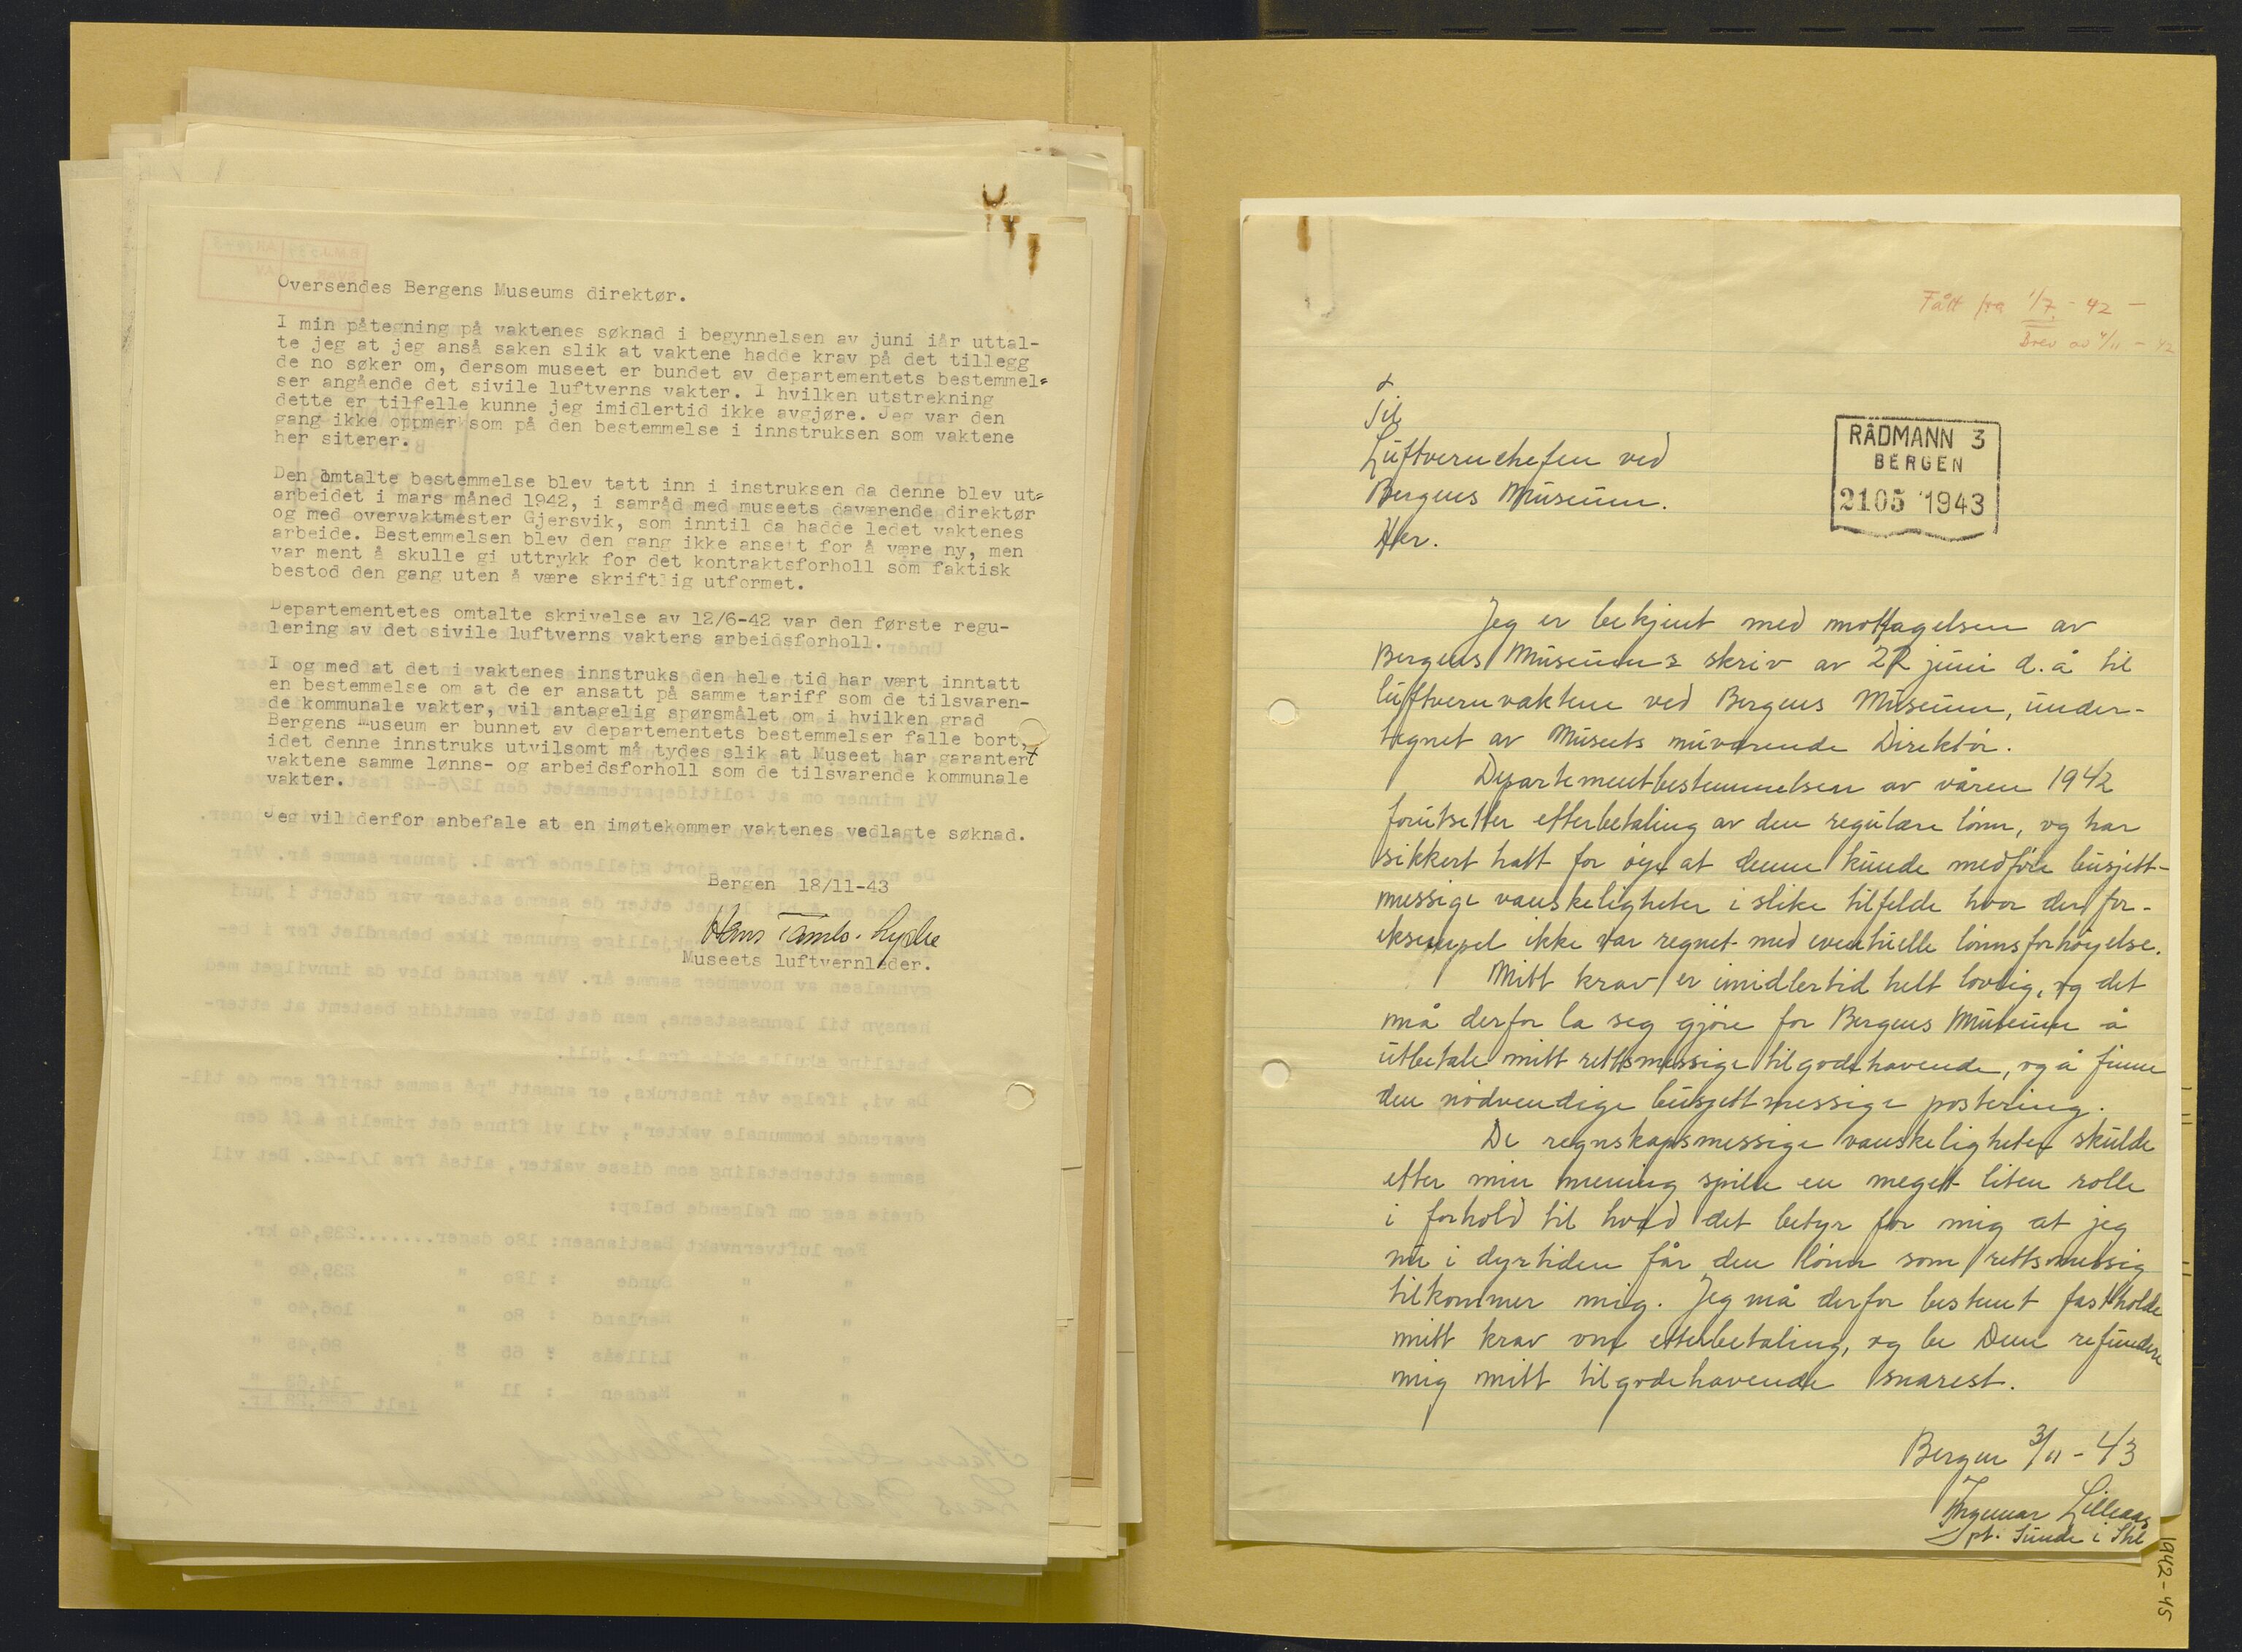 Oversendes Bergens Museums direktør.
I min påtegning på vaktenes søknad i begynnelsen av juni iår uttal-
te jeg at jeg anså saken slik at vaktene hadde krav på det tillegg
de no søker om, dersom museet er bundet av departementets bestemmel=
ser angående det sivile luftverns vakter. I hvilken utstrekning
dette er tilfelle kunne jeg imidlertid ikke avgjøre. Jeg var den
gang ikke oppmerksom på den bestemmelse i innstruksen som vaktene
her siterer.
Den omtalte bestemmelse blev tatt inn i instruksen da denne blev ut=
arbeidet i mars måned 1942, i samråd med museets daværende direktør
og med overvaktmester Gjersvik, som inntil da hadde ledet vaktenes
arbeide. Bestemmelsen blev den gang ikke ansett for å være ny, men
var ment å skulle gi uttrykk for det kontraktsforholl som faktisk
bestod den gang uten å være skriftlig utformet.
Departementetes omtalte skrivelse av 12/6-42 var den første regu-
lering av det sivile luftverns vakters arbeidsforholl.
I og med at det i vaktenes innstruks den hele tid har vært inntatt
en bestemmelse om at de er ansatt på samme tariff som de tilsvaren-
de kommunale vakter, vil antagelig spørsmålet om i hvilken grad
Bergens Museum er bunnet av departementets bestemmelser falle bort,
idet denne innstruks utvilsomt må tydes slik at Museet har garantert
vaktene samme lønns- og arbeidsforholl som de tilsvarende kommunale
vakter.
Jeg vil derfor anbefale at en imøtekommer vaktenes vedlagte søknad.
Bergen 18/11-43
Hans Tambs-Lyche
Museets luftvernleder.
Fått fra 1/7 - 42 -
Brev av 4/11 - 42
Til
Luftvernchefen ved
Bergens Museum.
Her.
RÅDMANN 3
BERGEN
2105 1943
Jeg er bekjent med mottagelsen av
Bergens Museums skriv av 22 juni d.å til
luftvernvaktene ved Bergens Museum, under-
tegnet av Museets nuværende Direktør.
Departementbestemmelsen av våren 1942
forutsetter efterbetaling av den regulære lønn, og har
sikkert hatt for øye at denne kunde medføre busjett-
messige vanskeligheter i slike tilfelde hvor der for-
eksempel ikke var regnet med eventuelle lønnsforhøyelse.
Mitt krav er imidlertid helt lovlig, og det
må derfor la seg gjøre for Bergens Museum å
utbetale mitt rettsmessige tilgodehavende, og å finne
den nødvendige busjettmessige postering.
De regnskapsmessige vanskeligheter skulde
etter min mening spille en meget liten rolle
i forhold til hvad det betyr for mig at jeg
nu i dyrtiden får den lønn som rettsmessig
tilkommer mig. Jeg må derfor bestemt fastholde
mitt krav om etterbetaling, og be Dem refundere
mig mitt tilgodehavende snarest.
Bergen 3/11 - 43
Ingemar Lilleaas
pt. Sunde i Skl
1942-45